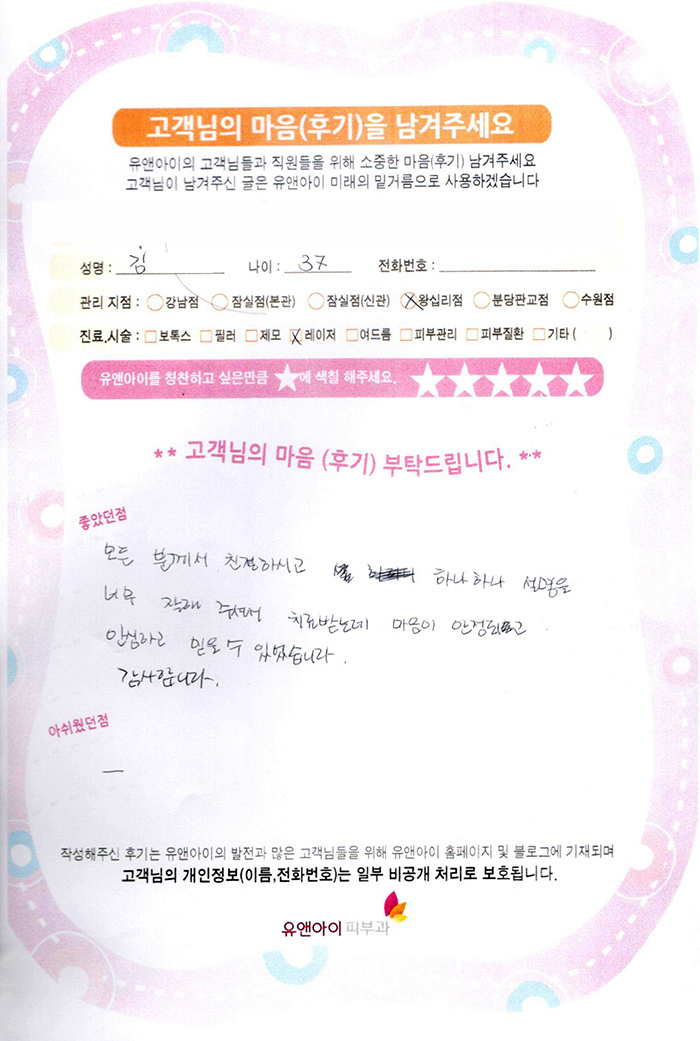 고객님의 마음(후기)을 남겨주세요
유앤아이의 고객님들과 직원들을 위해 소중한 마음(후기) 남겨주세요
고객님이 남겨주신 글은 유앤아이 미래의 밑거름으로 사용하겠습니다
성명 : 김 나이 : 37 전화번호 :
관리 지점 : 강남점 잠실점(본관) 잠실점(신관) 왕십리점 분당판교점 수원점
진료,시술 : 보톡스 필러 제모 레이저 여드름 피부관리 피부질환 기타 ( )
유앤아이를 칭찬하고 싶은만큼 ★에 색칠 해주세요. ★★★★★
** 고객님의 마음 (후기) 부탁드립니다. **
좋았던점
모든 분께서 친절하시고 하나하나 설명을
너무 잘해 주셔서 치료받는데 마음이 안정되고
안심하고 믿을 수 있었습니다.
감사합니다.
아쉬웠던점
—
작성해주신 후기는 유앤아이의 발전과 많은 고객님들을 위해 유앤아이 홈페이지 및 블로그에 기재되며
고객님의 개인정보(이름,전화번호)는 일부 비공개 처리로 보호됩니다.
유앤아이 피부과